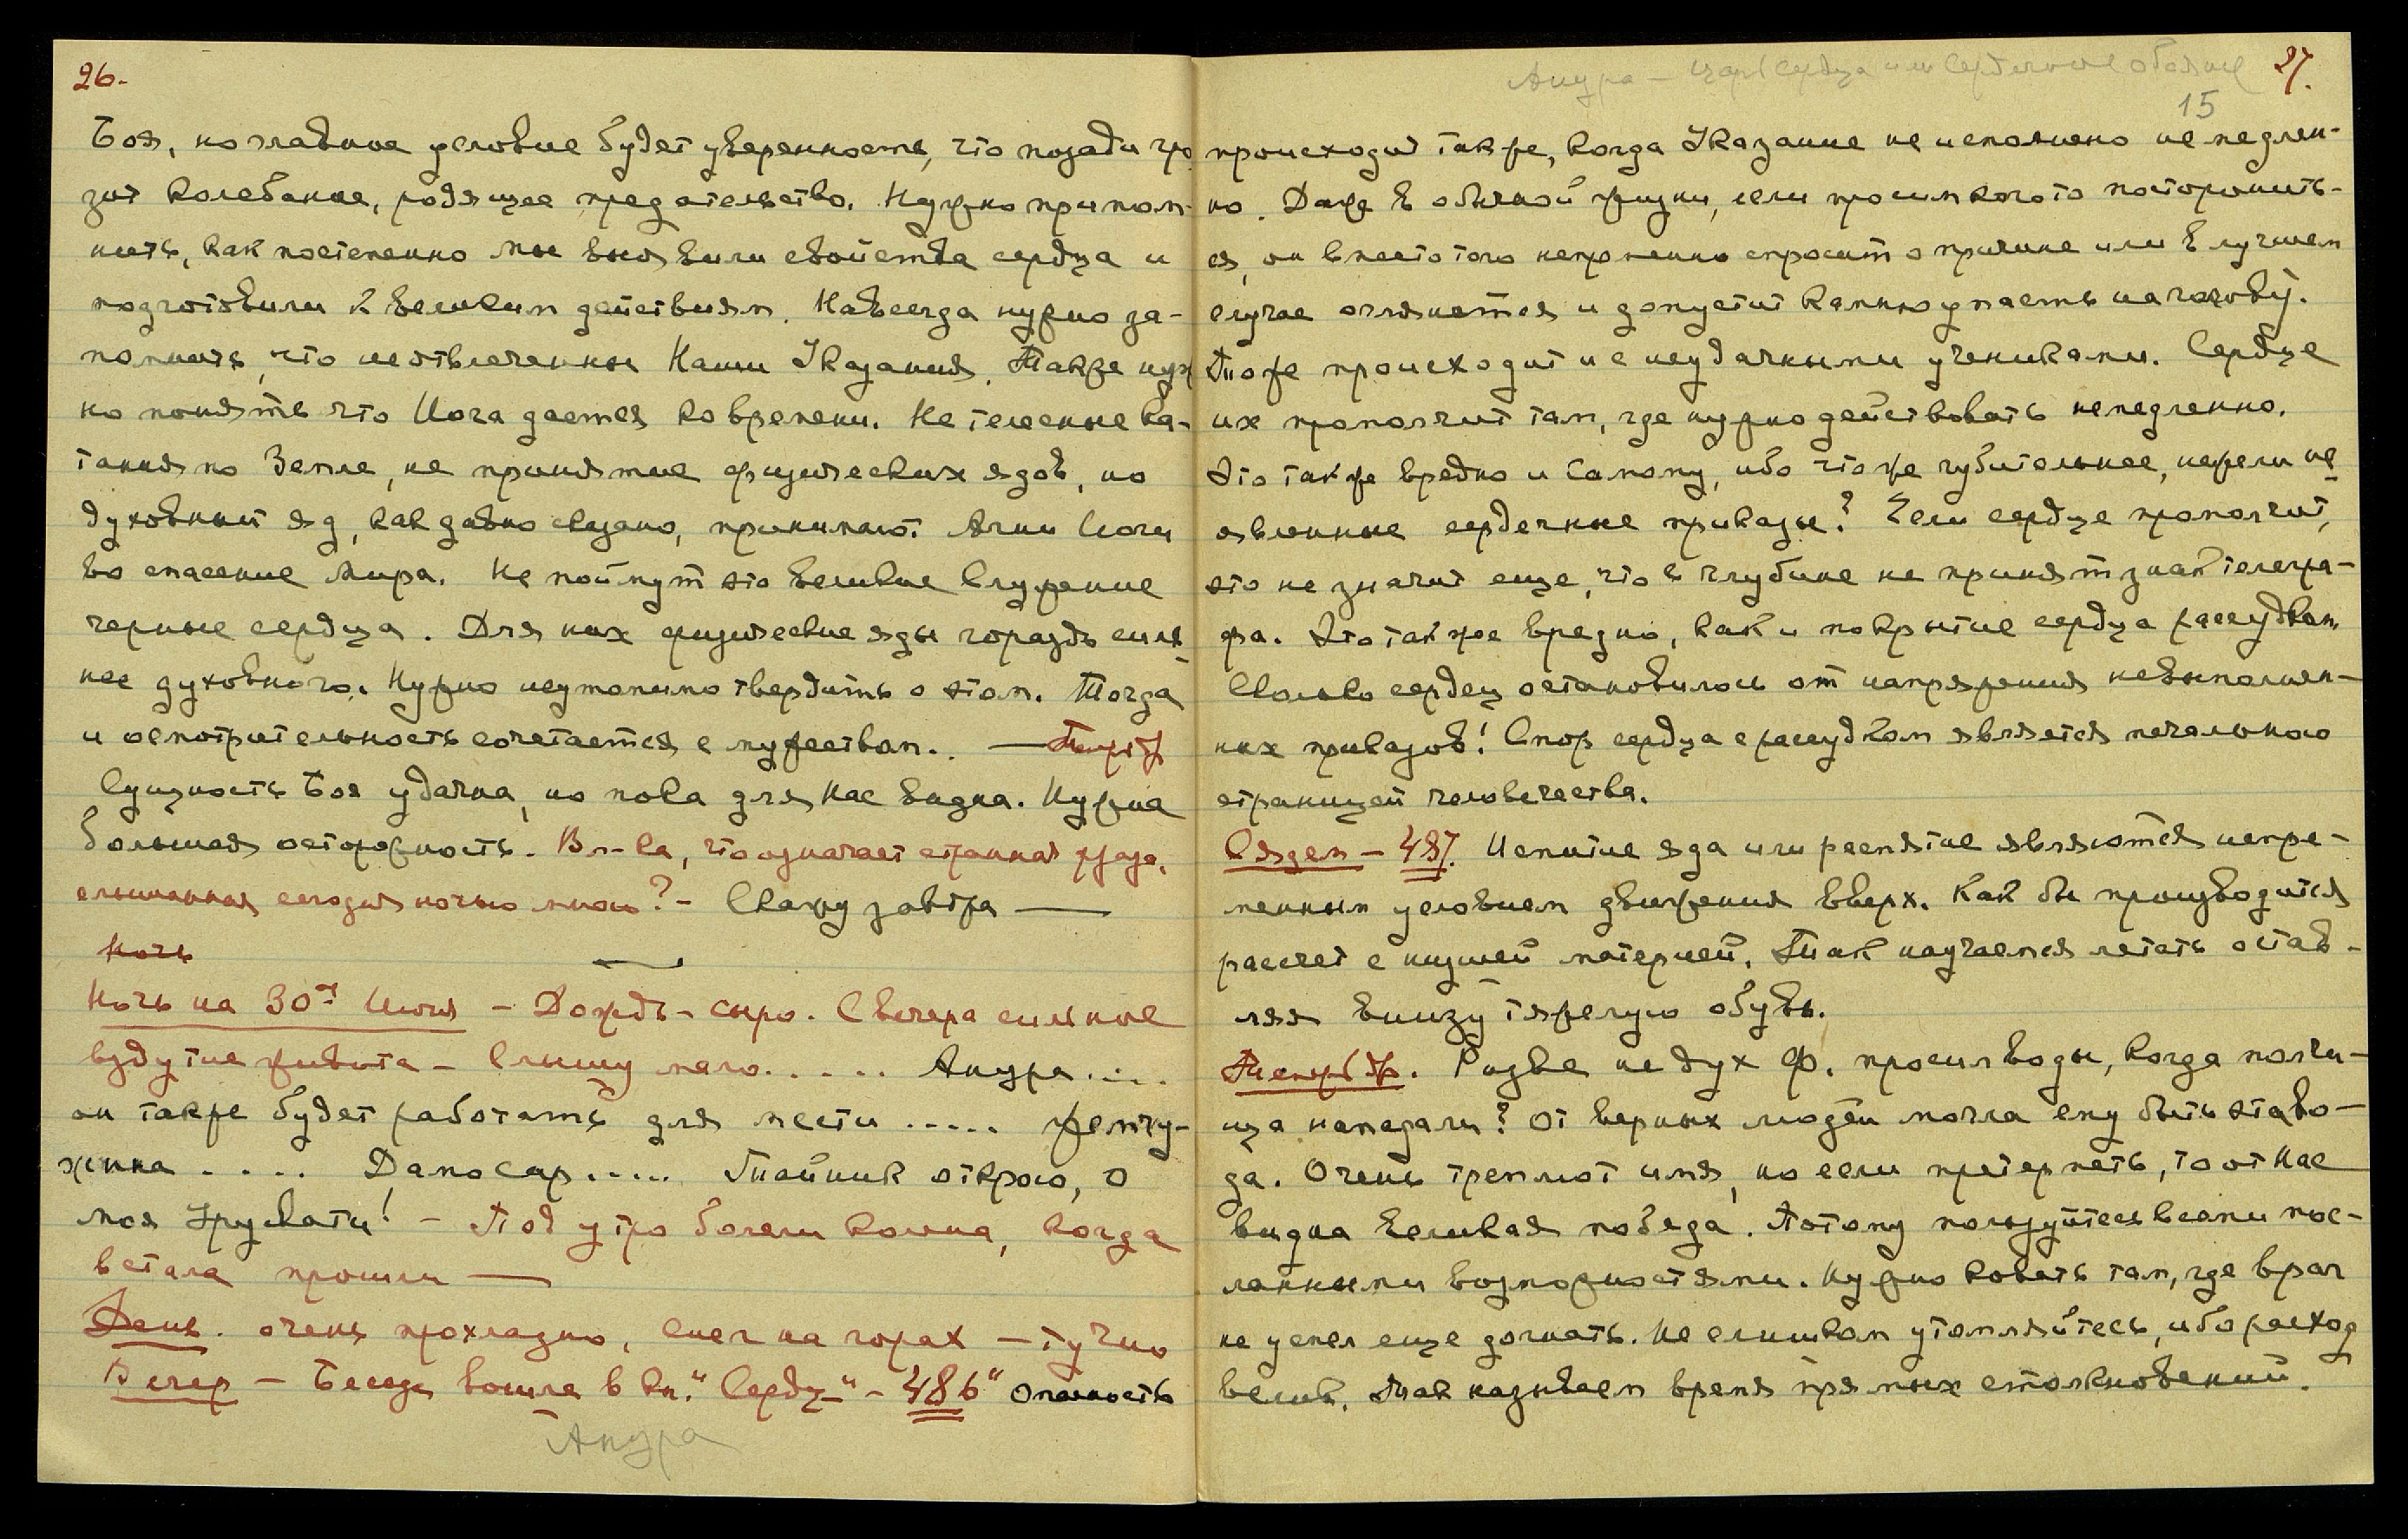 26.
Боя, но главное условие будет уверенность, что позади гро
зит колебание, родящее предательство. Нужно припом-
нить, как постепенно мы выявили свойства сердца и
подготовили к великим действиям. Навсегда нужно за-
помнить, что неотвлеченны Наши Указания. Также нуж
но понять что Йога дается ко времени. Не телесные ка-
тания по Земле, не принятие физических ядов, но
духовный яд, как давно сказано, принимают Агни Йоги
во спасение Мира. Не поймут это великое Служение
черные сердца. Для них физические яды гораздо силь
нее духовного. Нужно неутомимо твердить о этом. Тогда
и осмотрительность сочетается с мужеством. —
Сущность Боя удачна, но пока для Нас видна. Нужна
большая осторожность. Вл-ка, что означает странная фраза,
слышанная сегодня ночью мною? - Скажу завтра —
Ночь
Ночь на 30ое Июля - Дождь - сыро. С вечера сильное
вздутие живота - Слышу мало..... Анура....
он также будет работать для мести ..... жемчу-
жина ..... Дамосар ..... Тайник открою, о
моя Урусвати! - Под утро болели колена, когда
встала прошли —
День. очень прохладно, снег на горах - тучно
Вечер - Беседа вошла в кн. "Сердц-" - 486 "Опасность
Анура
Анура - царь сердца или Сердечное обаяние 27.
15
происходит также, когда Указание не исполнено немедлен-
но. Даже в обычной жизни, если просим кого то посторонить-
ся, он вместо того непременно спросит о причине или в лучшем
случае оглянется и допустит камню упасть на голову.
Тоже происходит и с неудачными учениками. Сердце
их промолчит там, где нужно действовать немедленно.
Это также вредно и самому, ибо что же губительнее, нежели не
явленные сердечные приказы? Если сердце промолчит,
это не значит еще, что в глубине не принят знак телегра-
фа. Это также вредно, как и покрытие сердца рассудком
Сколько сердец остановилось от напряжения невыполнен-
ных приказов! Спор сердца с рассудком является печальною
страницей человечества.
Сядем - 487. Испитие яда или распятие являются непре-
менным условием движения вверх. Как бы производится
рассчет с низшей материей. Так научаемся летать остав-
ляя внизу тяжелую обувь.
Разве не дух Ф. просил воды, когда полчи-
ща нападали? От верных людей могла ему быть эта во-
да. Очень треплют имя, но если претерпеть, то от Нас
видна великая победа. Потому пользуйтесь всеми пос-
ланными возможностями. Нужно ковать там, где враг
не успел еще догнать. Не слишком утомляйтесь, ибо расход
велик. Так называем время прямых столкновений.